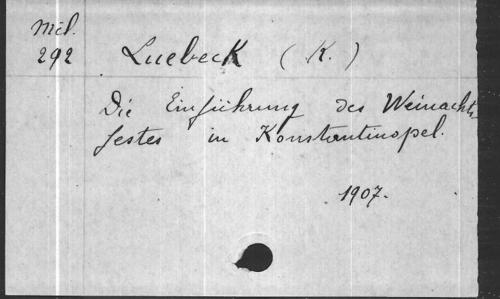 Mél.
292
Luebeck (K.)
Die Einführung des Weinachts
festes in Konstantinopel.
1907.